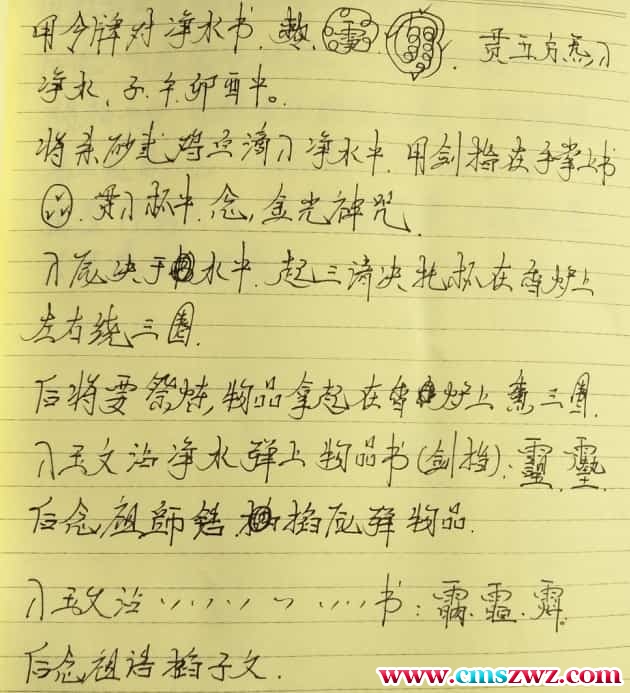 用令牌对净水书.敕. 贯五方炁入
净水,子.午.卯酉中。
将朱砂或鸡血滴入净水中.用剑指在手掌上书
贯入杯中.念,金光神咒.
入 决于水中.起三清决托杯在香炉上
左右绕三圈.
后将要祭炼物品拿起在香炉上熏三圈.
入玉文沾净水弹上物品书(剑指):
后念祖师 掐 弹物品.
入玉文沾、、、、、、、、、书:
后念祖诰掐子文.
www.cmszwz.com